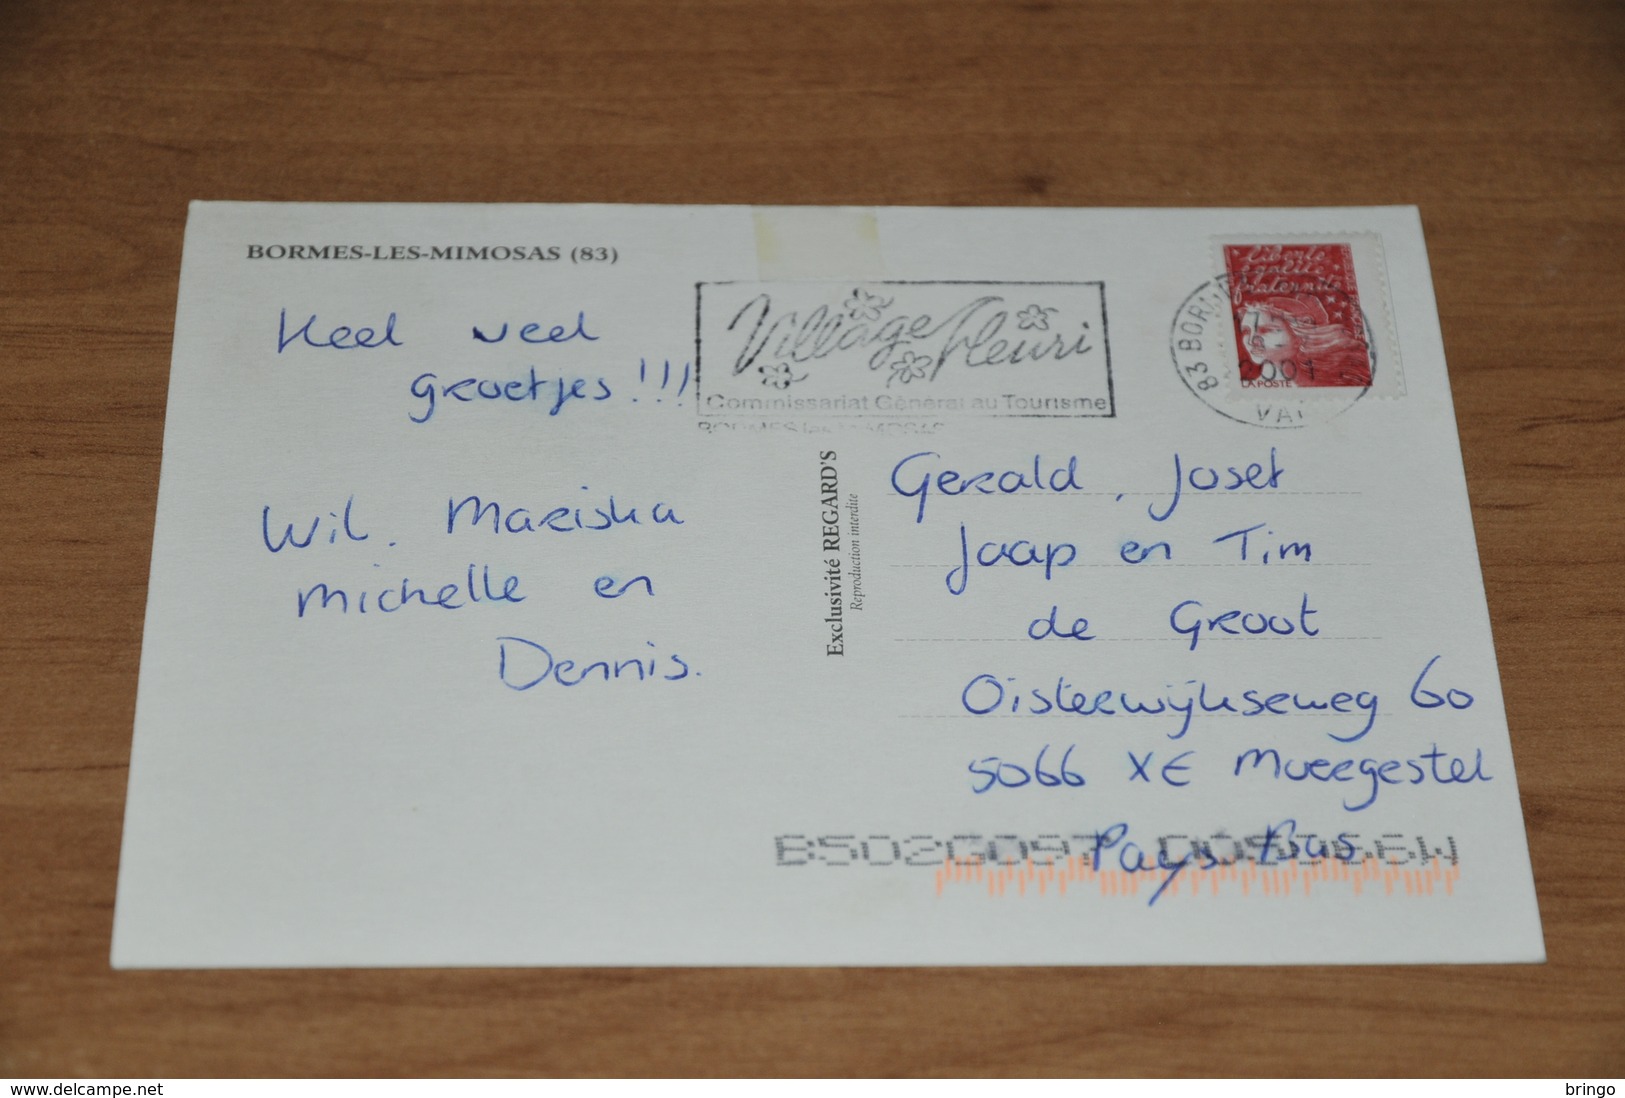 BORMES-LES-MIMOSAS (83)
Heel veel
groetjes!!!
Wil, Mariska
Michelle en
Dennis.
Village Fleuri
Commissariat Général au Tourisme
BORMES les MIMOSAS
Liberté
égalité
fraternité
LA POSTE
2001
VAR
Exclusivité REGARD'S
Reproduction interdite
Gerald, Josef
Jaap en Tim
de Groot
Oisterwijkseweg 60
5066 XE Moergestel
Pays Bas
delcampe.net
bringo